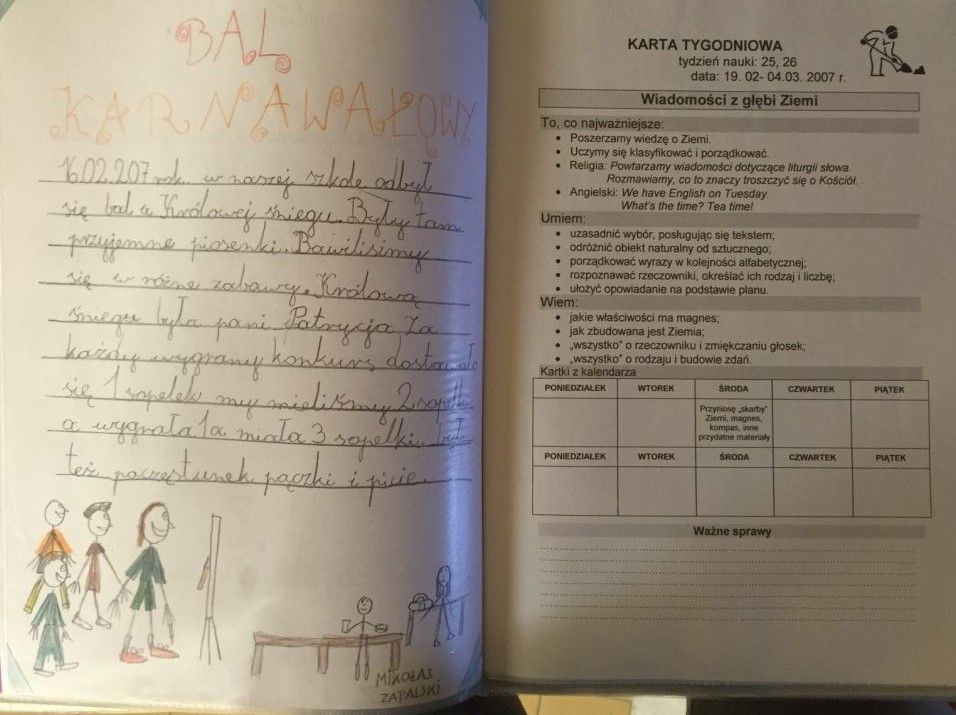 BAL
KARNAWAŁOWY
16.02.207 rok. w naszej szkole odbył
się bal u Królowej śniegu. Były tam
przyjemne piosenki. Bawilisimy
się w różne zabawy. Królową
śniegu była pani Patrycja Za
każdy wygrany konkurs dostawało
się 1 sopelek my mieliśmy 2 sopelki
a wygrała 1a miała 3 sopelki. był
też poczęstunek pączki i picie.
MIKOŁAJ
ZAPALSKI
KARTA TYGODNIOWA
tydzień nauki: 25, 26
data: 19. 02- 04.03. 2007 r.
Wiadomości z głębi Ziemi
To, co najważniejsze:
• Poszerzamy wiedzę o Ziemi.
• Uczymy się klasyfikować i porządkować.
• Religia: Powtarzamy wiadomości dotyczące liturgii słowa.
Rozmawiamy, co to znaczy troszczyć się o Kościół.
• Angielski: We have English on Tuesday.
What's the time? Tea time!
Umiem:
• uzasadnić wybór, posługując się tekstem;
• odróżnić obiekt naturalny od sztucznego;
• porządkować wyrazy w kolejności alfabetycznej;
• rozpoznawać rzeczowniki, określać ich rodzaj i liczbę;
• ułożyć opowiadanie na podstawie planu.
Wiem:
• jakie właściwości ma magnes;
• jak zbudowana jest Ziemia;
• „wszystko" o rzeczowniku i zmiękczaniu głosek;
• „wszystko" o rodzaju i budowie zdań.
Kartki z kalendarza
PONIEDZIAŁEK WTOREK ŚRODA CZWARTEK PIĄTEK
Przyniosę „skarby"
Ziemi, magnes,
kompas, inne
przydatne materiały
PONIEDZIAŁEK WTOREK ŚRODA CZWARTEK PIĄTEK
Ważne sprawy